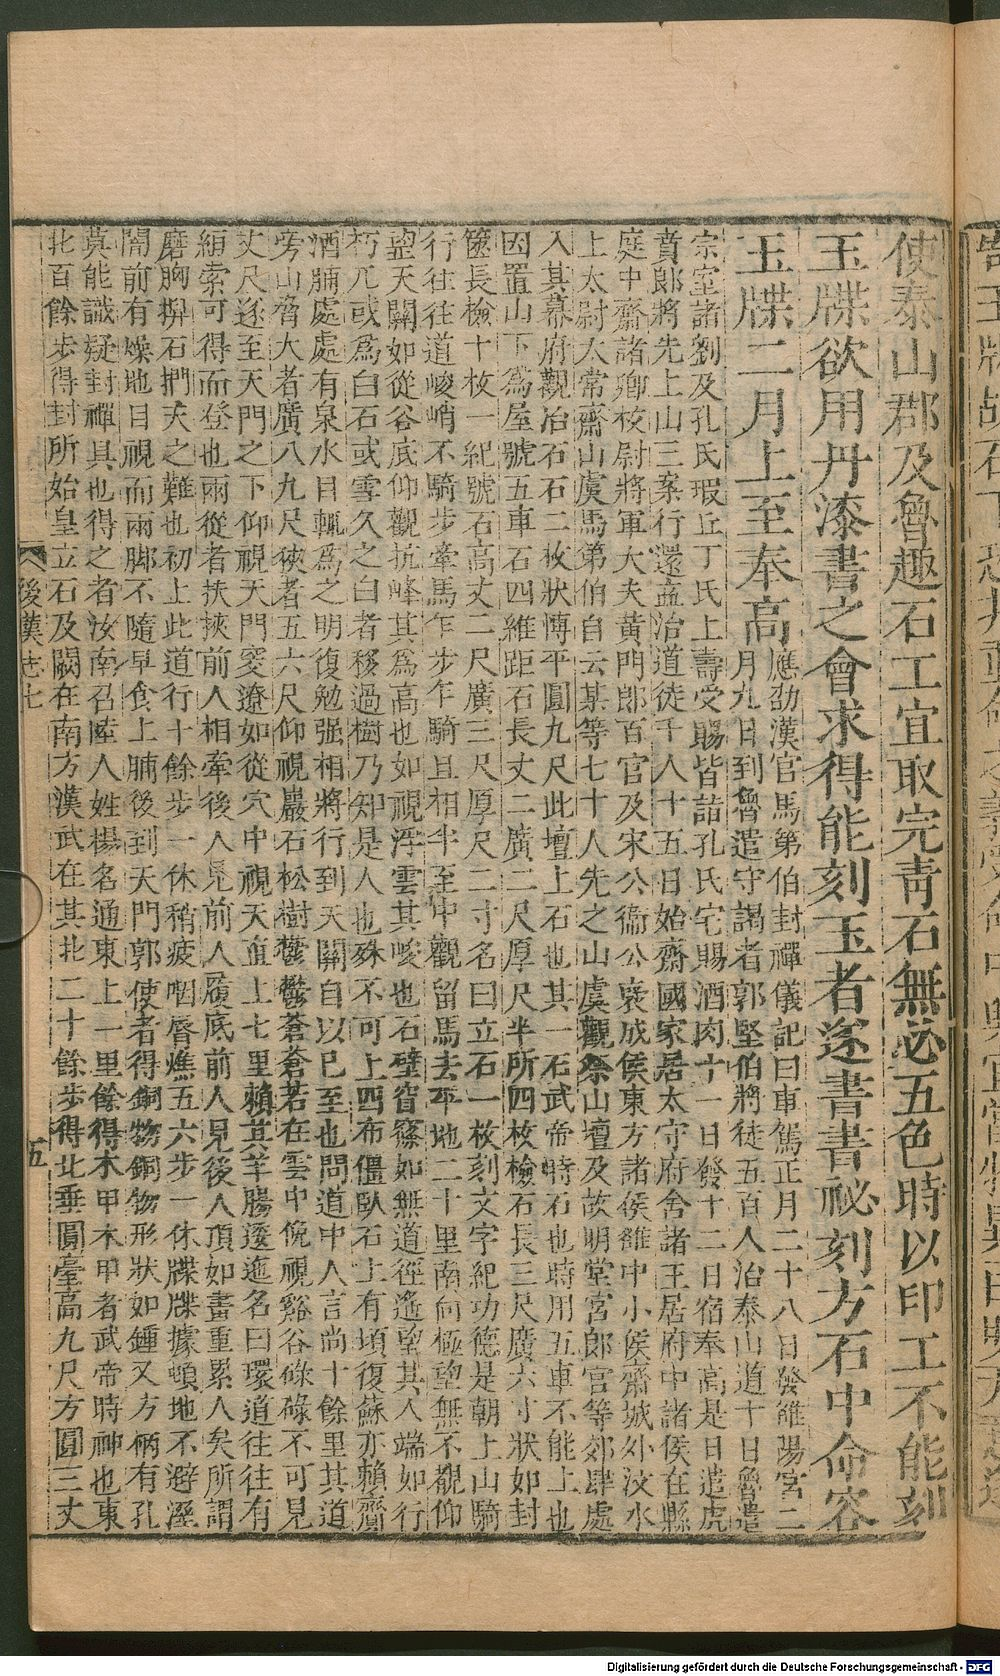 使泰山郡及魯趣石工宜取完青石無必五色時以印工不能刻
玉牒欲用丹漆書之會求得能刻玉者遂書書祕刻方石中命容
玉牒二月上至奉高
應劭漢官馬第伯封禪儀記曰車駕正月二十八日發雒陽宮二
月九日到魯遣守謁者郭堅伯將徒五百人治泰山道十日魯遣
宗室諸劉及孔氏瑕丘丁氏上壽受賜皆詣孔氏宅賜酒肉十一日發十二日宿奉高是日遣虎
賁郎將先上山三案行還益治道徒千人十五日始齋國家居太守府舍諸王居府中諸侯在縣
庭中齋諸卿校尉將軍大夫黃門郎百官及宋公衞公襃成侯東方諸侯雒中小侯齋城外汶水
上太尉太常齋山虞馬第伯自云某等七十人先之山虞觀祭山壇及故明堂宮郎官等郊肆處
入其幕府觀治石石二枚狀博平圓九尺此壇上石也其一石武帝時石也時用五車不能上也
因置山下爲屋號五車石四維距石長丈二廣二尺厚尺半所四枚檢石長三尺廣六寸狀如封
篋長檢十枚一紀號石高丈二尺廣三尺厚尺二寸名曰立石一枚刻文字紀功德是朝上山騎
行往往道峻峭不騎步牽馬乍步乍騎且相半至中觀留馬去平地二十里南向極望無不覩仰
望天關如從谷底仰觀抗峰其爲高也如視浮雲其峻也石壁窅窱如無道徑遙望其人端如行
朽兀或爲白石或雪久之白者移過樹乃知是人也殊不可上四布僵臥石上有頃復蘇亦賴齎
酒脯處處有泉水目輒爲之明復勉强相將行到天關自以已至也問道中人言尚十餘里其道
旁山脅大者廣八九尺狹者五六尺仰視巖石松樹鬱鬱蒼蒼若在雲中俛視谿谷碌碌不可見
丈尺遂至天門之下仰視天門窔遼如從穴中視天直上七里賴其羊腸逶迤名曰環道往往有
絙索可得而登也兩從者扶挾前人相牽後人見前人履底前人見後人頂如畫重累人矣所謂
磨胸捫石捫天之難也初上此道行十餘步一休稍疲咽脣燋五六步一休牒牒據頓地不避溼
闇前有燥地目視而兩脚不隨早食上脯後到天門郭使者得銅物銅物形狀如鍾又方柄有孔
莫能識疑封禪具也得之者汝南召陵人姓楊名通東上一里餘得木甲木甲者武帝時神也東
北百餘步得封所始皇立石及闕在南方漢武在其北二十餘步得北垂圓臺高九尺方圓三丈
後漢志七
五
Digitalisierung gefördert durch die Deutsche Forschungsgemeinschaft - DFG